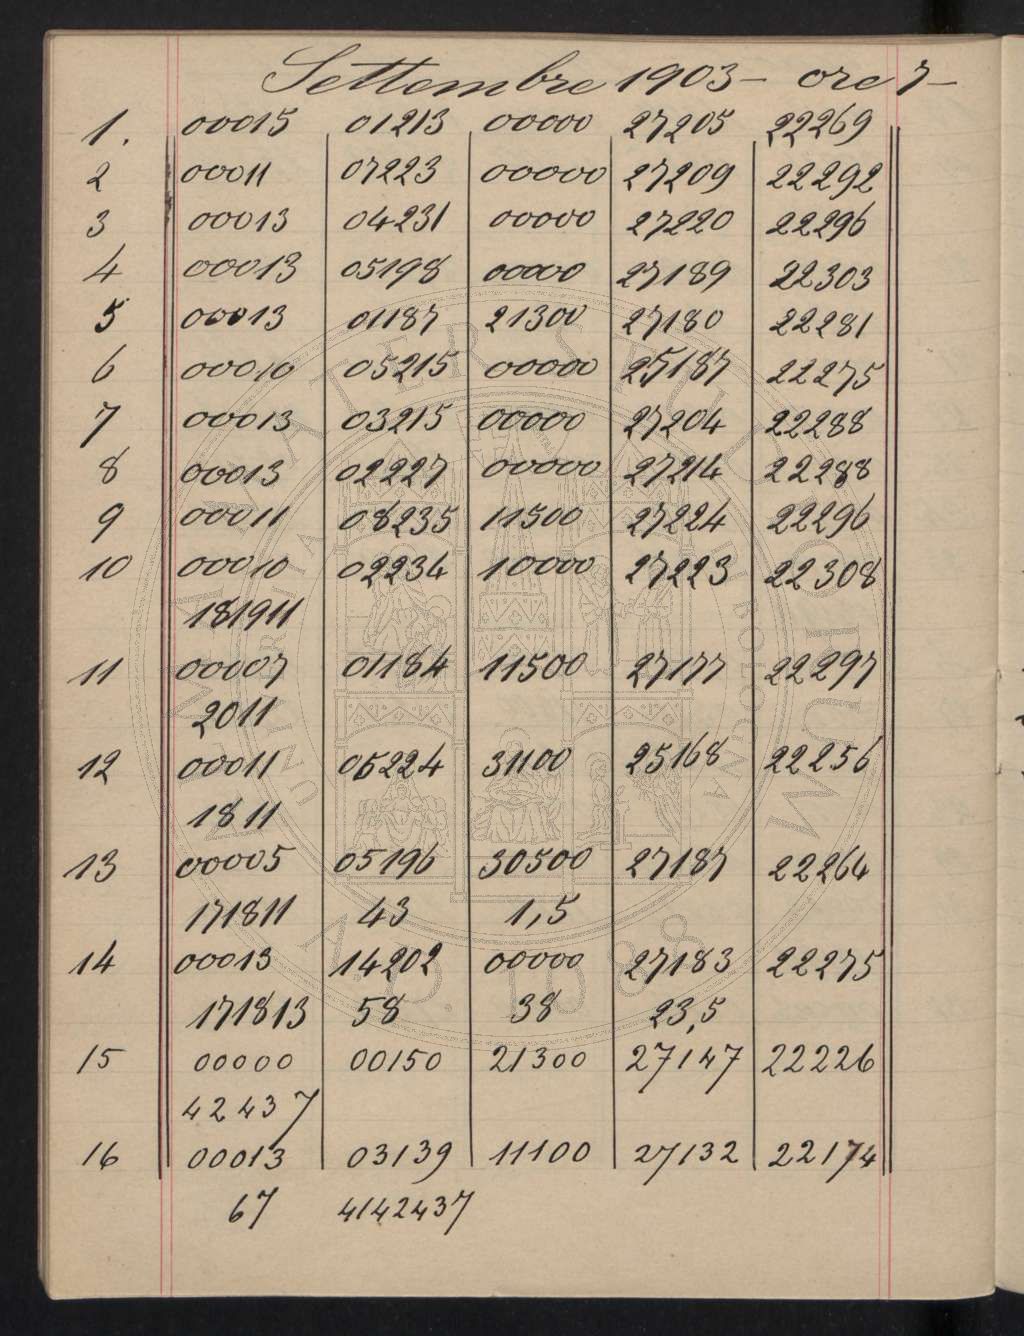 Settembre 1903 - ore 7 -
1. 00015 01213 00000 27205 22269
2 00011 07223 00000 27209 22292
3 00013 04231 00000 27220 22296
4 00013 05198 00000 27189 22303
5 00013 01187 21300 27180 22281
6 00010 05215 00000 25187 22275
7 00013 03215 00000 27204 22288
8 00013 02227 00000 27214 22288
9 00011 08235 11500 27224 22296
10 00010 02234 10000 27223 22308
181911
11 00007 01184 11500 27177 22297
2011
12 00011 05224 31100 25168 22256
1811
13 00005 05196 30500 27187 22264
171811 43 1,5
14 00013 14202 00000 27183 22275
171813 58 38 23,5
15 00000 00150 21300 27147 22226
42437
16 00013 03139 11100 27132 22174
67 4142437
ALMA MATER STUDIORUM
UNIVERSITAS BONONIENSIS
A.D. 1088